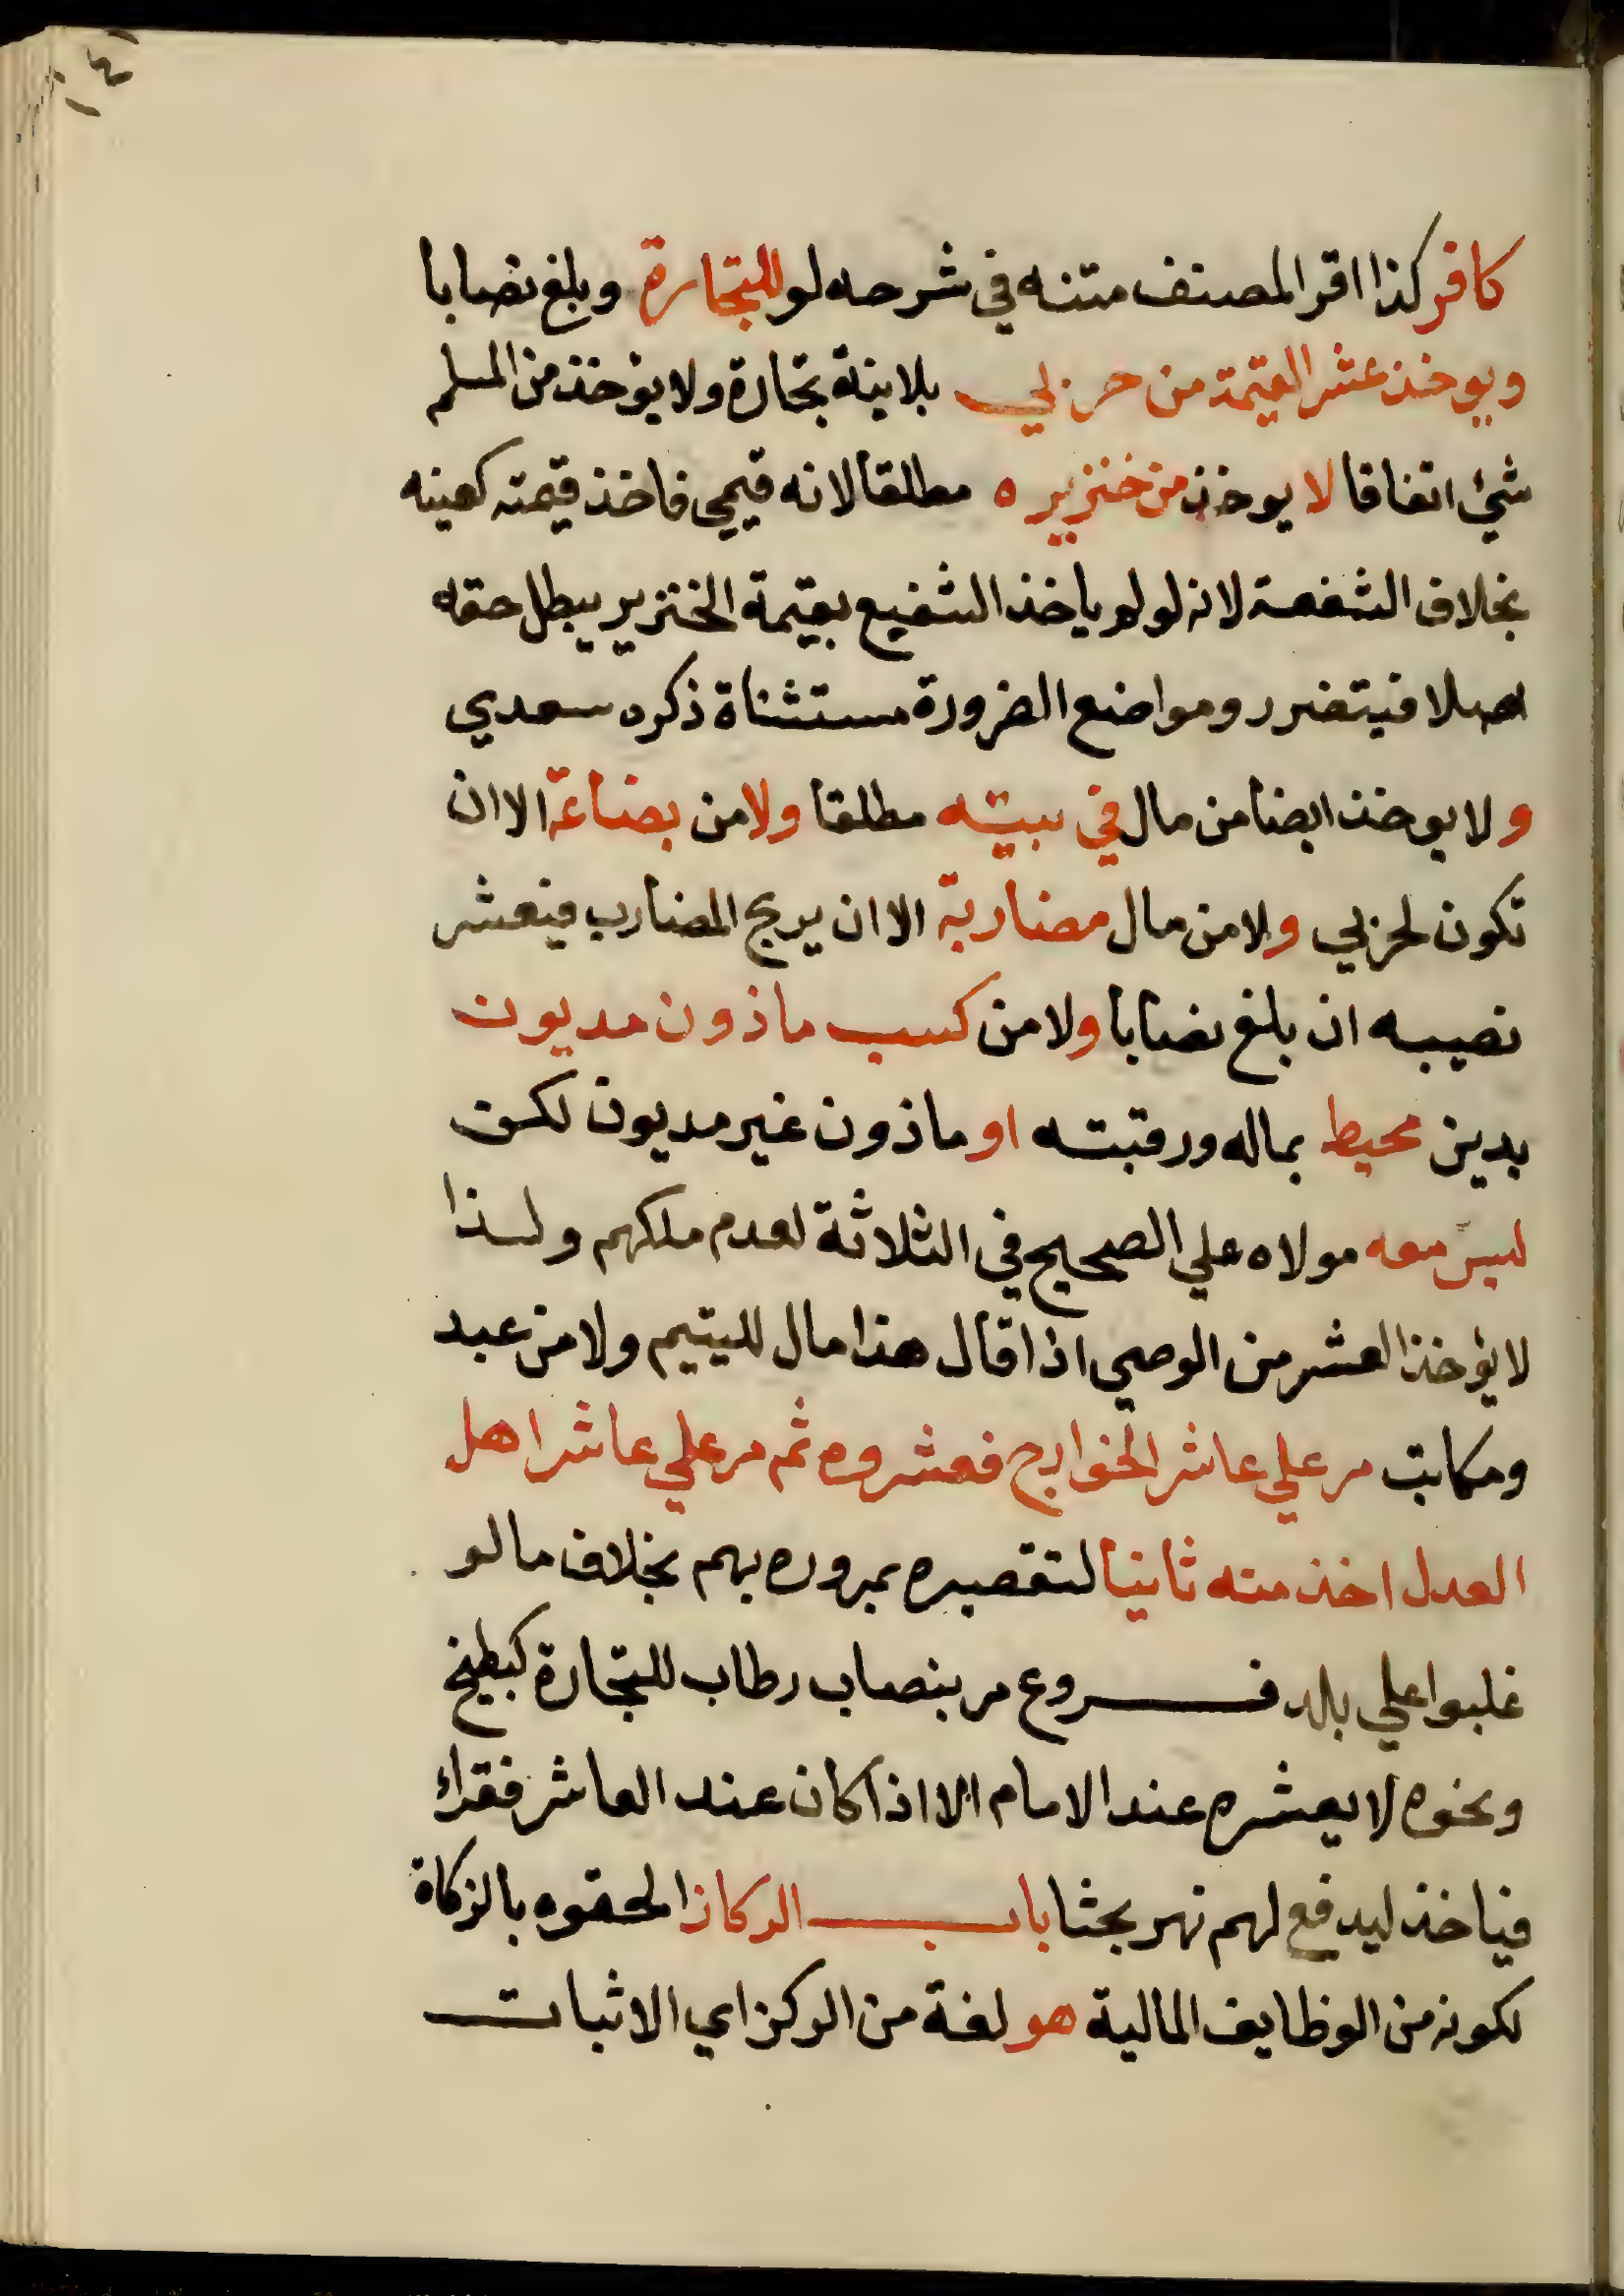 كافر كذا اقر المصنف متنه في شرحه لو للتجارة وبلغ نصابا
ويوخذ عشر القيمة من حربي بلا نية تجارة ولا يؤخذ من المسلم
شئ اتفاقا لا يوخذ من خنزيره مطلقا لانه قيمي فاخذ قيمته كعينه
بخلاف الشفعة لانه لو لم ياخذ الشفيع بقيمة الخنزير يبطل حقه
اصلا فيتضرر ومواضع الضرورة مستثناة ذكره سعدي
و لا يوخذ ايضا من مال في بيته مطلقا ولا من بضاعة الا ان
تكون لحربي ولا من مال مضاربة الا ان يربح المضارب فيعشر
نصيبه ان بلغ نصابا ولا من كسب ماذون مديون
بدين محيط بماله ورقبته او ماذون غير مديون لكن
ليس معه مولاه علي الصحيح في الثلاثة لعدم ملكهم ولذا
لا يؤخذ العشر من الوصي اذا قال هذا مال لليتيم ولا من عبد
ومكاتب مر علي عاشر الخوارج فعشروه ثم مر علي عاشر اهل
العدل اخذ منه ثانيا لتقصيره بمروره بهم بخلاف ما لو
غلبوا علي بلد فروع مر بنصاب رطاب للتجارة كبطيخ
ونحوه لا يعشره عند الامام الا اذا كان عند العاشر فقراء
فياخذ ليدفع لهم نهر بحثا باب الركاز الحقوه بالزكاة
لكونه من الوظايف المالية هو لغة من الركز اي الاثبات